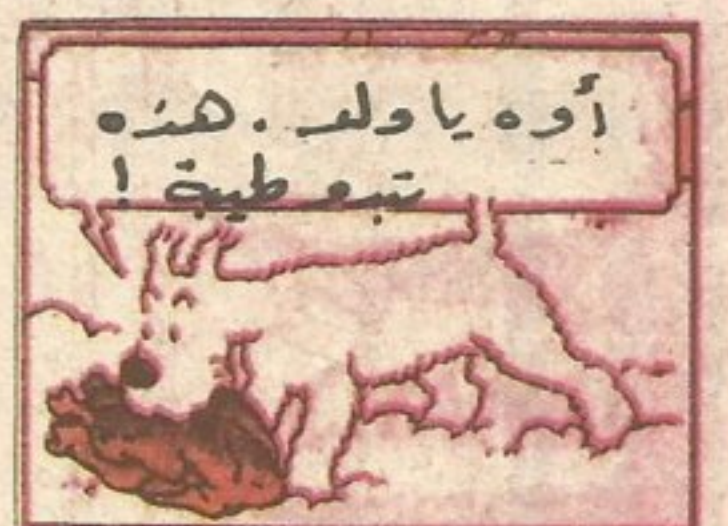 أوه يا ولد . هذه
تبدو طيبة !